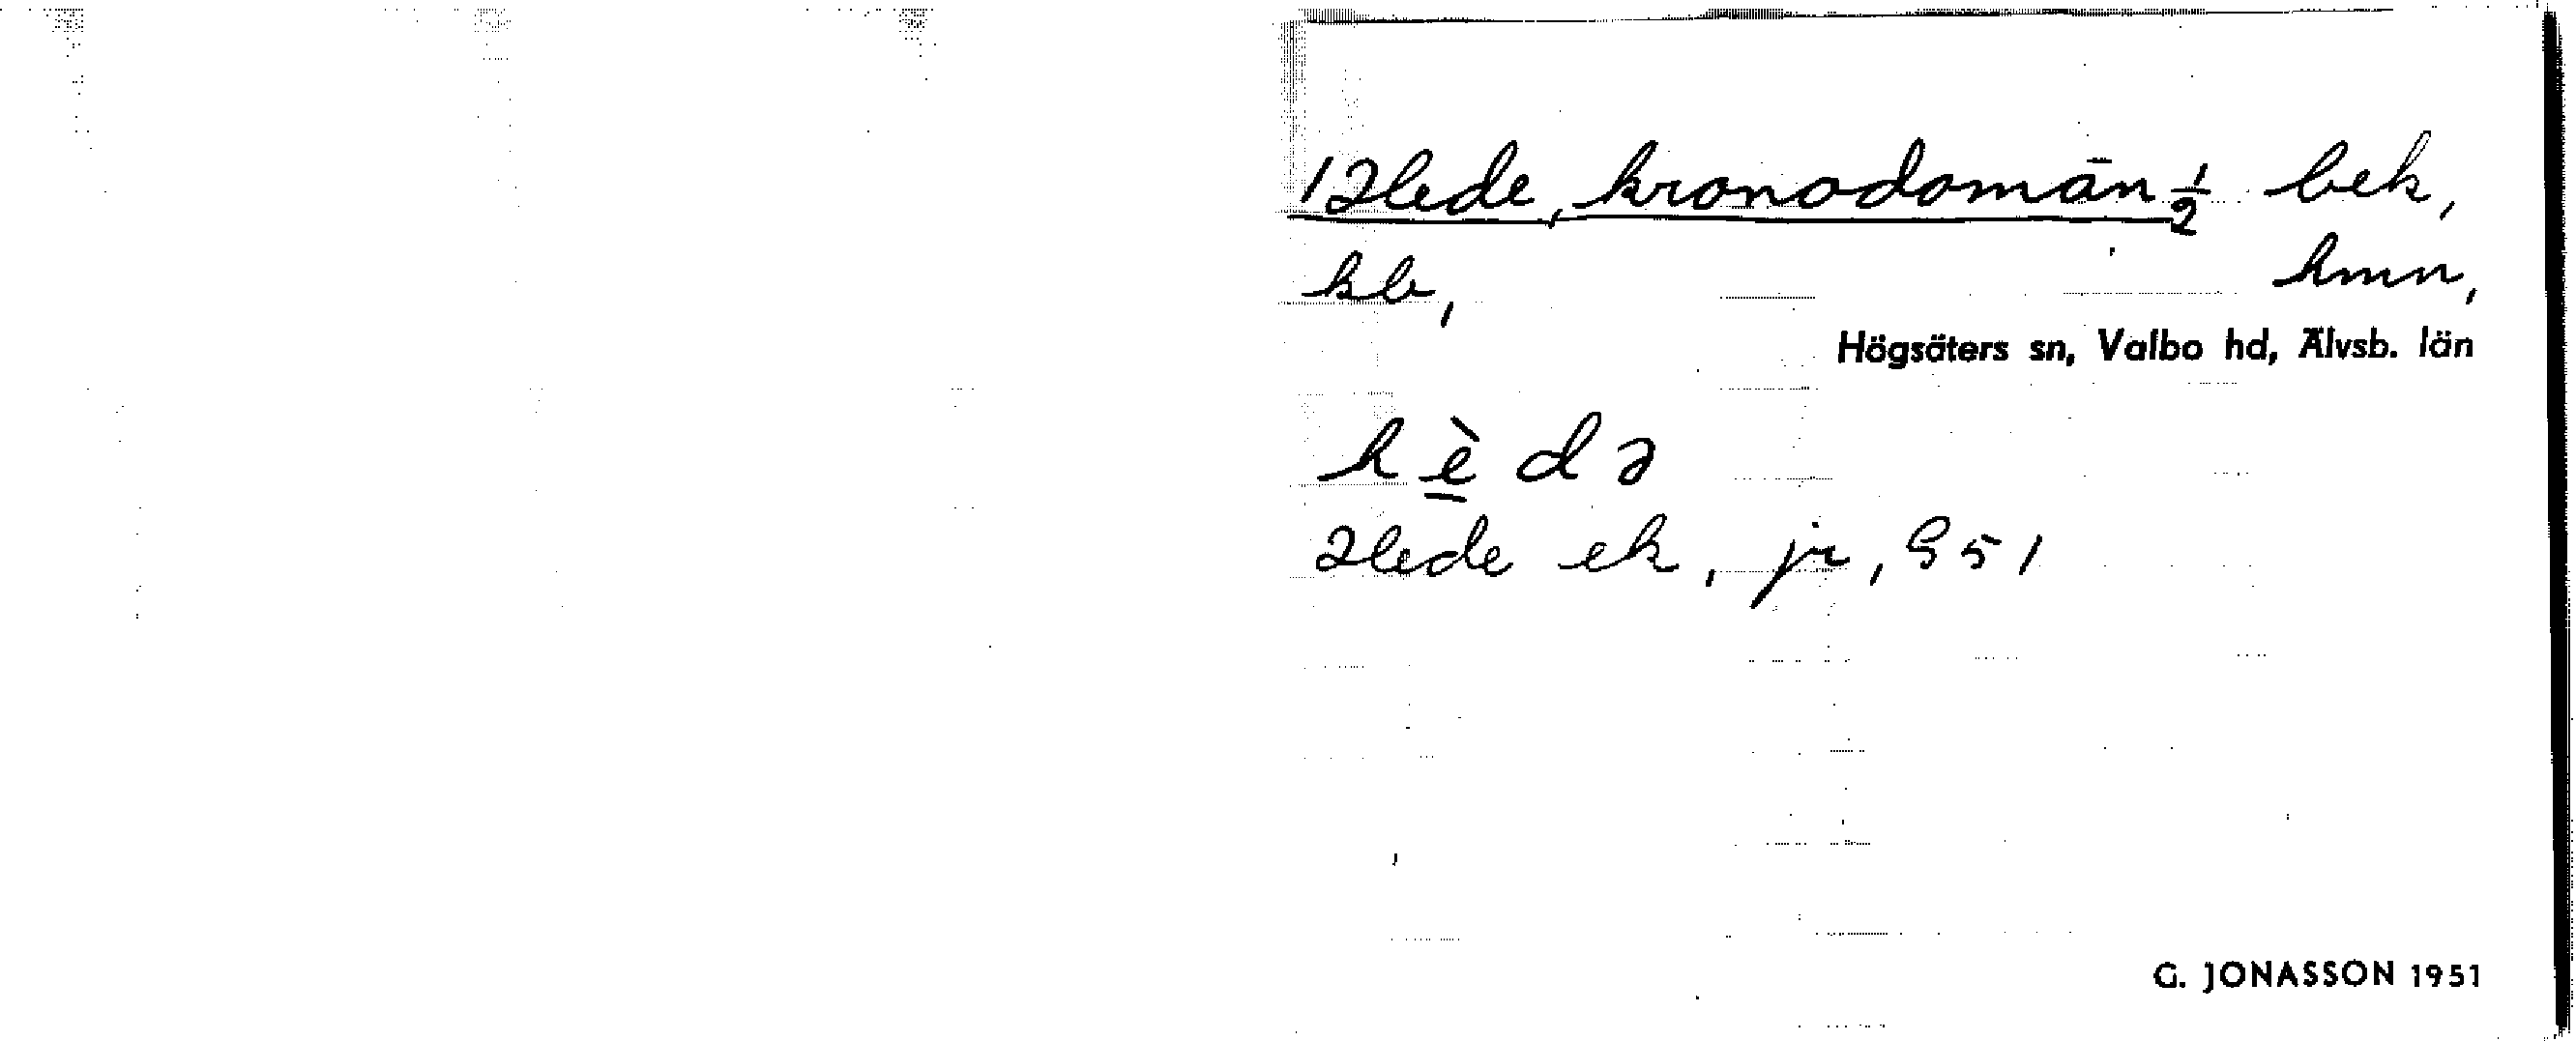 1 Hede, kronodomän 1/2 bek,
kb, hmn,
Högsäters sn, Valbo hd, Älvsb. län
hèdə
Hede ek, jr, 951
G. JONASSON 1951